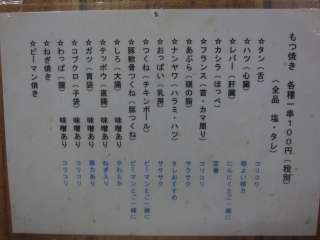 もつ焼き 各種一串100円（税別）
（全品 塩・タレ）
☆タン（舌） コリコリ
☆ハツ（心臓） 程よい弾力
☆レバー（肝臓） にんにくとご一緒に
☆カシラ（ほっぺ） 定番
☆フランス（首・カマ周り） コリコリ
☆あぶら（頭の脂） サクサク
☆ナンヤワ（ハラミ・ハツ） タレおすすめ
☆おっぱい（乳房） サクサク
☆つくね（チキンボール） ピーマンとご一緒に
☆豚軟骨つくね（豚つくね） ピーマンとご一緒に
☆しろ（大腸） 味噌あり やわらか
☆テッポウ（直腸） 味噌あり ねぎ入り
☆ガツ（胃袋） 味噌あり 弾力あり
☆コブクロ（子袋） 味噌あり コリコリ
☆わっぱ（腸） 味噌あり コリコリ
☆ねぎ焼き
☆ピーマン焼き